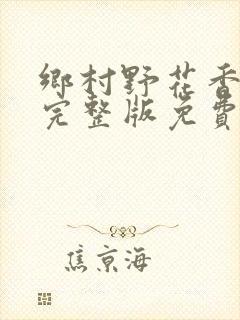 鄉村野花香
完整版免費
焦京海